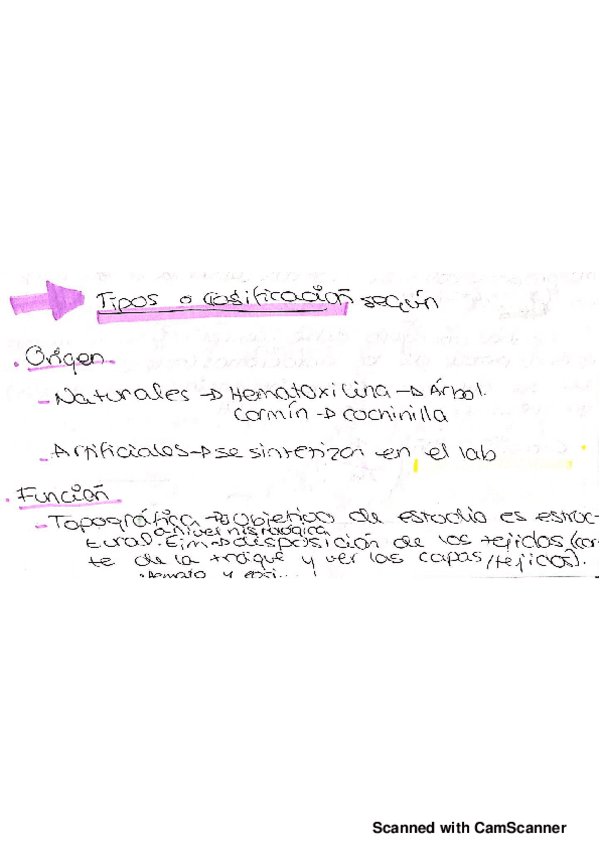 Tipos o clasificación según
. Origen.
- Naturales → Hematoxilina → Árbol.
Carmín → cochinilla
- Artificiales → se sintetizan en el lab
. Función
- Topográfica → Objetivo de estudio es estruc-
a nivel histológico
tural. Ejm → disposición de los tejidos (cor-
te de la tráque y ver las capas/tejidos).
y eosi...
Scanned with CamScanner